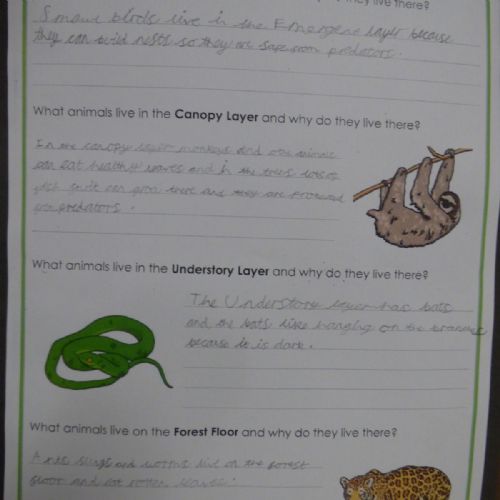 they live there?
Small birds live in the Emergent layer because
they can build nests so they are safe from predators.
What animals live in the Canopy Layer and why do they live there?
In the canopy layer monkeys and animals
can eat healthy leaves and in the trees lots of
fruit can grow there and they are
predators.
What animals live in the Understory Layer and why do they live there?
The Understory layer has bats
and the bats like hanging on the branches
because it is dark.
What animals live on the Forest Floor and why do they live there?
Ants and worms live on the forest
floor and eat rotten leaves.